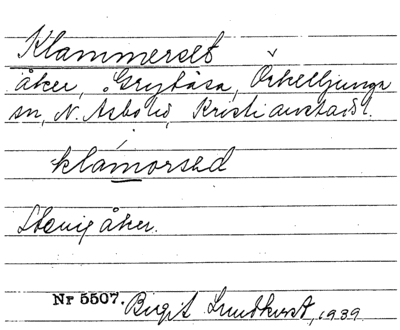 Klammerset
åker, Grytåsa, Örkelljunga
sn, N. Åsbo hd, Kristianstads l.
klamorsed
Stenig åker.
Nr 5507. Birgit Lundkvist, 1939.